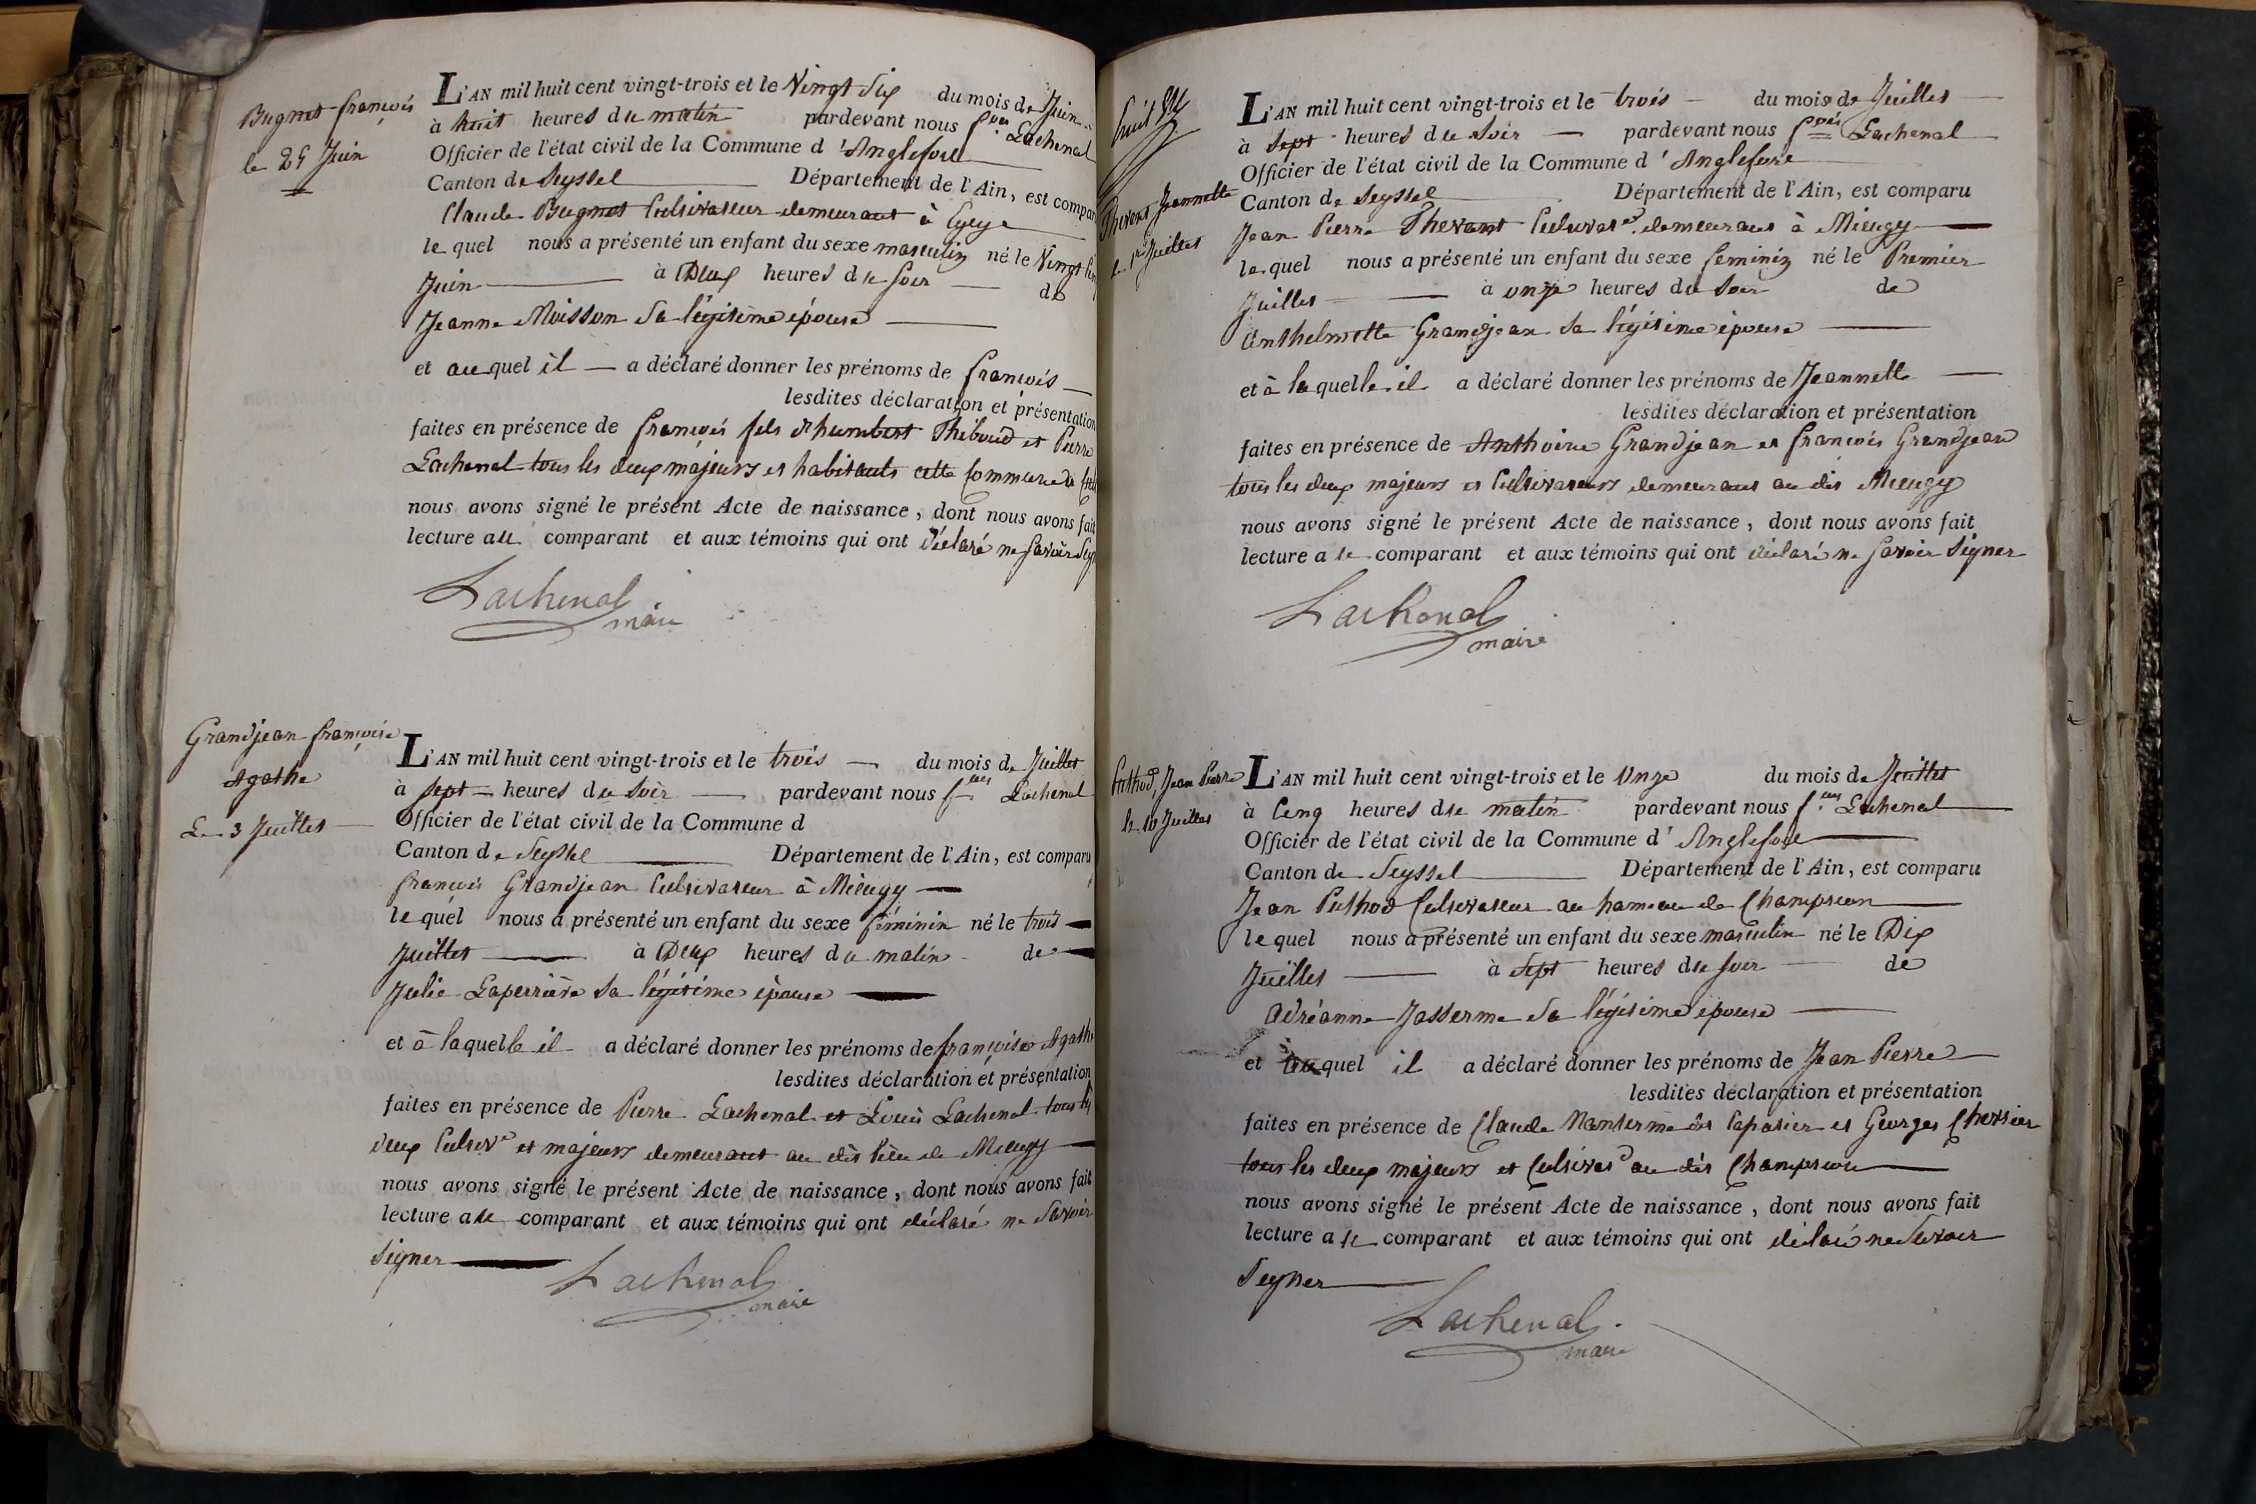 Bugnot françois
le 25 Juin
L'AN mil huit cent vingt-trois et le Vingt Six du mois de Juin
à huit heures du matin pardevant nous f.çois Lachenal
Officier de l'état civil de la Commune d'Anglefort
Canton de Seyssel Département de l'Ain, est compar
Claude Bugnot Cultivateur demeurant à
le quel nous a présenté un enfant du sexe masculin né le Vingt
Juin à Deux heures du soir de
Jeanne Moisson sa légitime épouse
et au quel il a déclaré donner les prénoms de françois
lesdites déclaration et présentation
faites en présence de françois fils d'humbert Thiboud et Pierre
Lachenal tous les deux majeurs et habitants cette Commune de
nous avons signé le présent Acte de naissance, dont nous avons fait
lecture au comparant et aux témoins qui ont déclaré ne savoir
Lachenal
maire
Grandjean françoise
Agathe
Le 3 Juillet
L'AN mil huit cent vingt-trois et le trois du mois de Juillet
à sept heures du soir pardevant nous f.çois Lachenal
Officier de l'état civil de la Commune d
Canton de Seyssel Département de l'Ain, est comparu
françois Grandjean Cultivateur à Mieugy
le quel nous a présenté un enfant du sexe féminin né le trois
Juillet à Deux heures du matin de
Julie Laperrière sa légitime épouse
et à laquelle il a déclaré donner les prénoms de françoise Agathe
lesdites déclaration et présentation
faites en présence de Pierre Lachenal et Louis Lachenal tous les
deux Cultiv.rs et majeurs demeurant au dit lieu de Mieugy
nous avons signé le présent Acte de naissance, dont nous avons fait
lecture au comparant et aux témoins qui ont déclaré ne savoir
signer
Lachenal
maire
Thevent Jeannette
le 1er Juillet
L'AN mil huit cent vingt-trois et le trois du mois de Juillet
à sept heures du soir pardevant nous f.çois Lachenal
Officier de l'état civil de la Commune d'Anglefort
Canton de Seyssel Département de l'Ain, est comparu
Jean Pierre Thevant Cultivat.r demeurant à Mieugy
le quel nous a présenté un enfant du sexe feminin né le Premier
Juillet à onze heures du soir de
Anthelmette Grandjean sa légitime épouse
et à la quelle il a déclaré donner les prénoms de Jeannette
lesdites déclaration et présentation
faites en présence de Anthoine Grandjean et françois Grandjean
tous les deux majeurs et Cultivateurs demeurant au dit Mieugy
nous avons signé le présent Acte de naissance, dont nous avons fait
lecture au comparant et aux témoins qui ont déclaré ne savoir signer
Lachenal
maire
Puthod, Jean Pierre
le 10 Juillet
L'AN mil huit cent vingt-trois et le Onze du mois de Juillet
à Cinq heures du matin pardevant nous f.çois Lachenal
Officier de l'état civil de la Commune d'Anglefort
Canton de Seyssel Département de l'Ain, est comparu
Jean Puthod Cultivateur au hameau de Champrion
le quel nous a présenté un enfant du sexe masculin né le Dix
Juillet à sept heures du soir de
Adréanne Jasserme sa légitime épouse
et au quel il a déclaré donner les prénoms de Jean Pierre
lesdites déclaration et présentation
faites en présence de Claude Manserme dit Caporier et Georges
tous les deux majeurs et Cultivat.rs au dit Champrion
nous avons signé le présent Acte de naissance, dont nous avons fait
lecture au comparant et aux témoins qui ont déclaré ne savoir
signer
Lachenal
maire